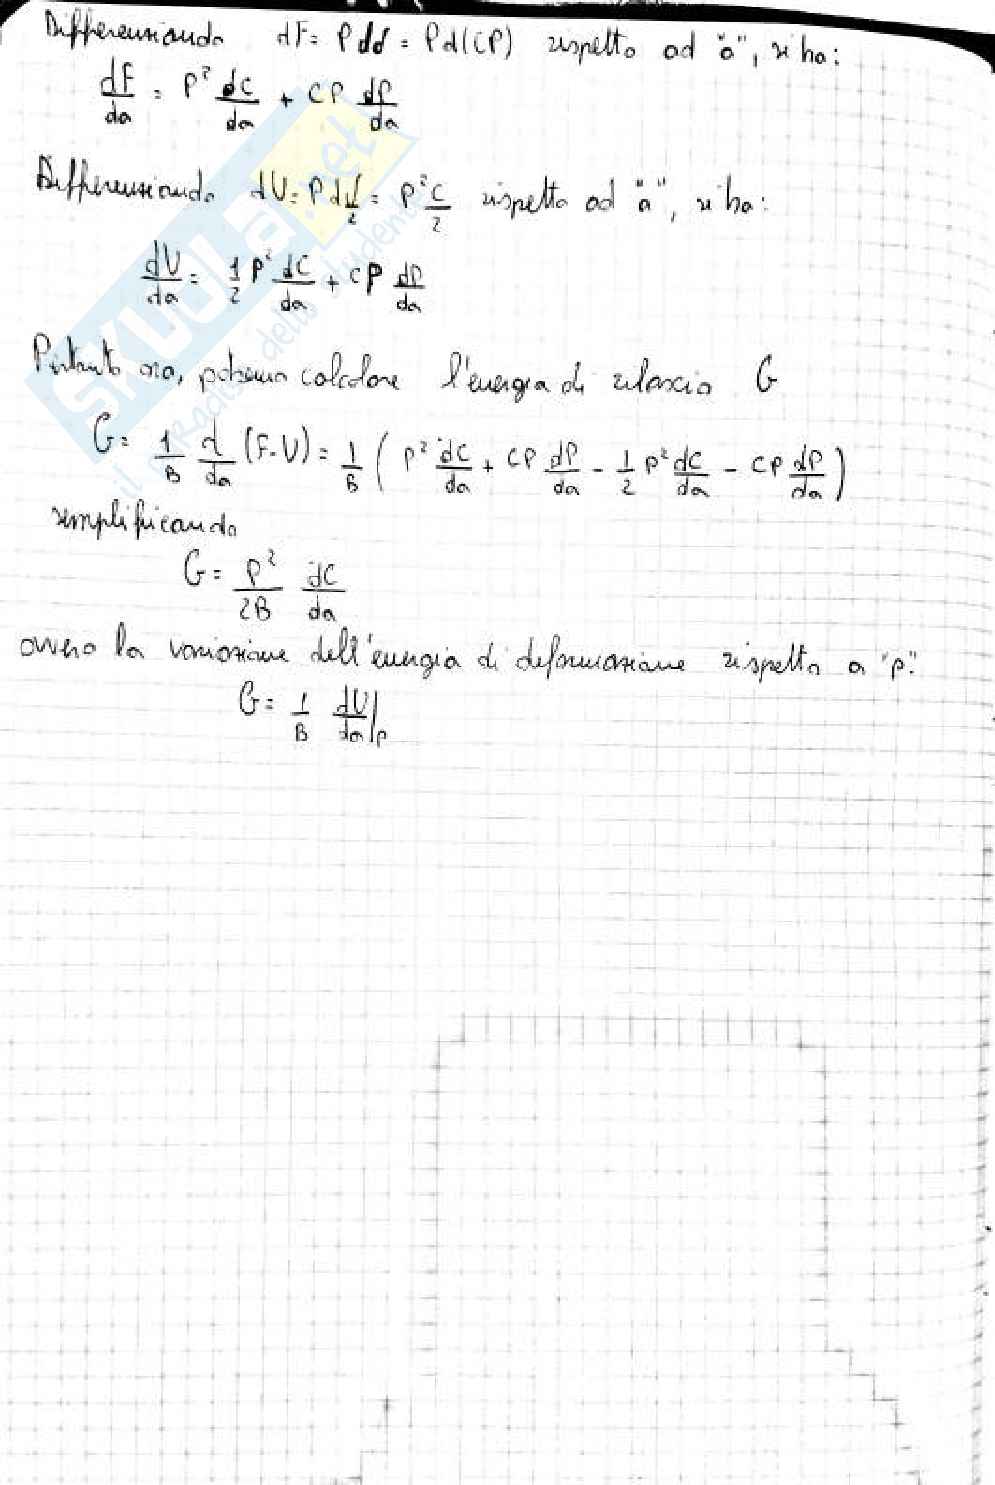 Differenziando dF = P dd = P d(CP) rispetto ad "a", si ha:
dF/da = P² dC/da + CP dP/da
Differenziando dU = P dd/2 = P² C/2 rispetto ad "a", si ha:
dU/da = 1/2 P² dC/da + CP dP/da
Pertanto ora, possiamo calcolare l'energia di rilascio G
G = 1/B d/da (F-U) = 1/B ( P² dC/da + CP dP/da - 1/2 P² dC/da - CP dP/da )
semplificando
G = P²/2B dC/da
ovvero la variazione dell'energia di deformazione rispetto a "p".
G = 1/B dU/da|p
SKUOLA.net
il paradiso dello studente